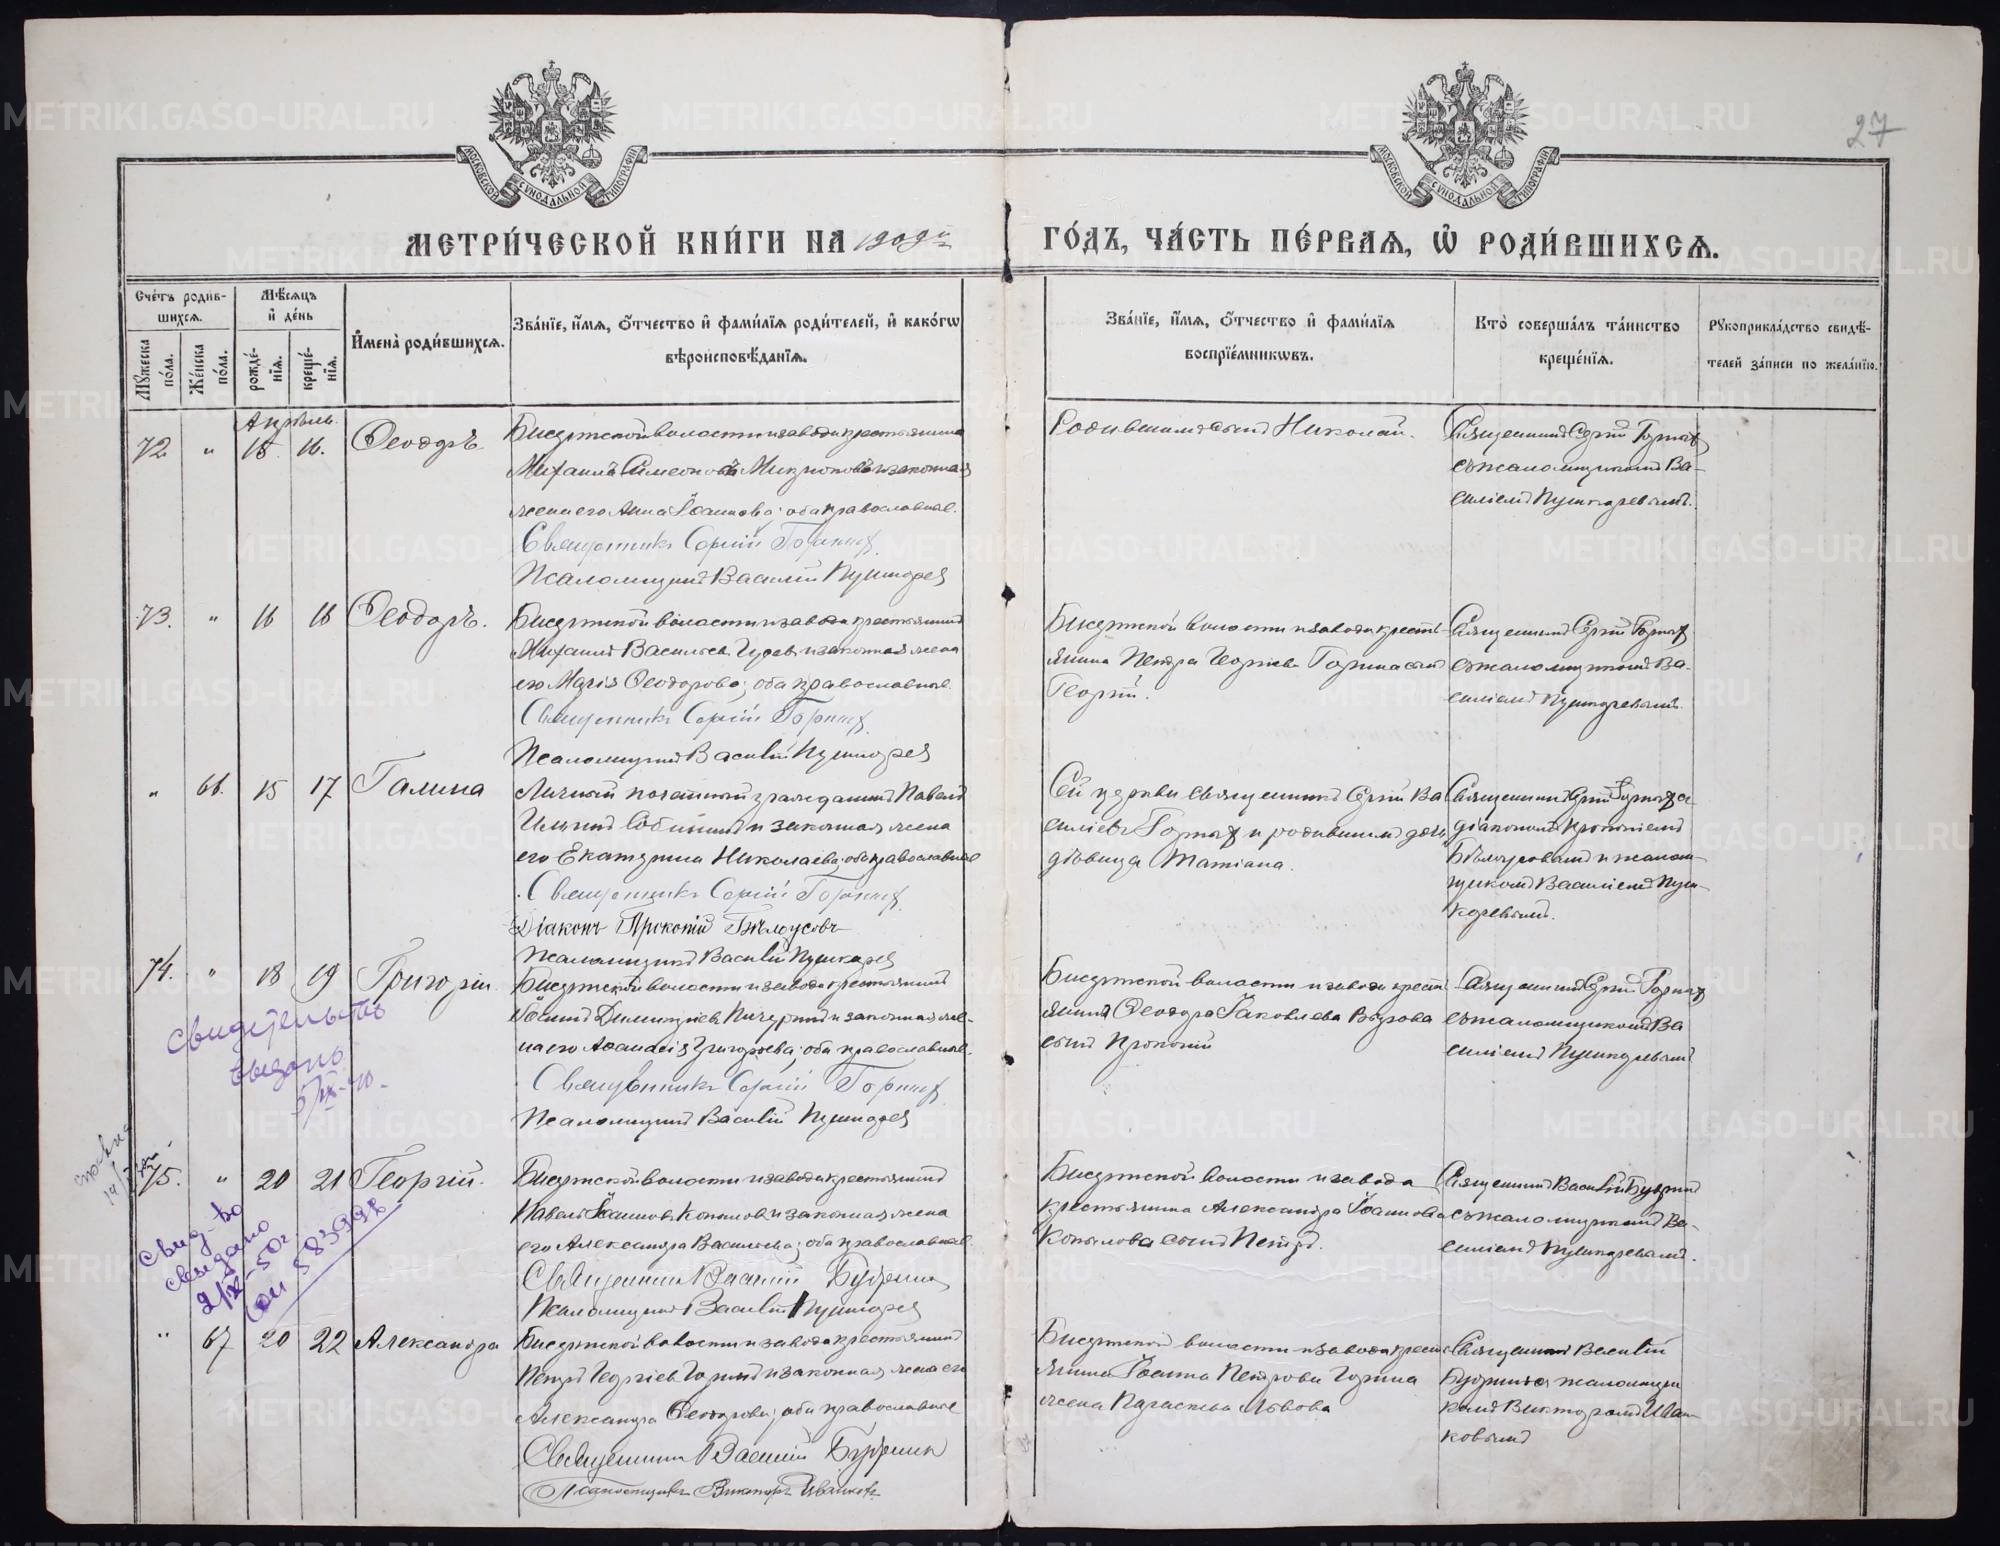 27
МОСКОВСКОЙ СѴНОДАЛЬНОЙ ТИПОГРАФІИ
МОСКОВСКОЙ СѴНОДАЛЬНОЙ ТИПОГРАФІИ
МЕТРИ́ЧЕСКОЙ КНИ́ГИ НА 1909й ГО́ДЪ, ЧА́СТЬ ПЕ́РВАЯ, Ѡ РОДИ́ВШИХСЯ.
Сче́тъ роди́в-
шихся.
Мꙋжеска по́ла.
Же́нска по́ла.
Мѣ́сяцъ
и҆ де́нь
рожде́-
нїя.
креще́-
нїя.
И҆мена̀ роди́вшихся.
Зва́нїе, и҆́мя, ѻ҆́тчество и҆ фами́лїя роди́телей, и҆ како́гѡ
вѣроисповѣ́данїя.
Зва́нїе, и҆́мя, ѻ҆́тчество и҆ фами́лїя
воспрїе́мникѡвъ.
Кто̀ соверша́лъ та́инство
креще́нїя.
Рꙋкоприкла́дство свидѣ́-
телей за́писи по жела́нїю.
Апрѣль
72. " 15. 16. Ѳеодоръ.
Бисертской волости и завода крестьянинъ
Михаилъ Симеоновъ и законная
жена его Анна Іоаннова; оба православные.
Священникъ Сергій Горныхъ
Псаломщикъ Василій Пушкаревъ
Родившихся сынъ Николай.
Священникъ Сергій Горныхъ
съ псаломщикомъ Ва-
силіемъ Пушкаревымъ.
73. " 16 16 Ѳеодоръ.
Бисертской волости и завода крестьянинъ
Михаилъ Васильевъ и законная жена
его Марія Ѳеодорова; оба православные
Священникъ Сергій Горныхъ
Псаломщикъ Василій Пушкаревъ
Бисертской волости и завода кресть-
янина Петра Георгіева Горина сынъ
Георгій.
Священникъ Сергій Горныхъ
съ псаломщикомъ Ва-
силіемъ Пушкаревымъ.
" 66. 15 17 Галина
Личный почетный гражданинъ Павелъ
и законная жена
его Екатерина Николаева; оба православные
Священникъ Сергій Горныхъ
Діаконъ Прокопій Бѣлоусовъ
Псаломщикъ Василій Пушкаревъ
Сей церкви священникъ Сергій Ва
силіевъ Горныхъ и родившихъ дочь
дѣвица Татіана.
Священникъ Сергій Горныхъ съ
діакономъ Прокопіемъ
Бѣлоусовымъ и псалом-
щикомъ Василіемъ Пуш-
каревымъ.
74. " 18 19 Григорій
Бисертской волости и завода крестьянинъ
Іоаннъ Димитріевъ и законная же-
на его Григорьева; оба православные.
Священникъ Сергій Горныхъ
Псаломщикъ Василій Пушкаревъ
Бисертской волости и завода кресть
янина Ѳеодора Іаковлева
сынъ Прокопій
Священникъ Сергій Горныхъ
съ псаломщикомъ Ва
силіемъ Пушкаревымъ
свидетельств
выдано
75. " 20 21 Георгій.
Бисертской волости и завода крестьянинъ
Павелъ Іоанновъ Копыловъ и законная жена
его Александра Васильева; оба православные.
Священникъ Василій Будринъ
Псаломщикъ Василій Пушкаревъ
Бисертской волости и завода
крестьянина Александра Іоаннова
Копылова сынъ Петръ.
Священникъ Василій Будринъ
съ псаломщикомъ Ва-
силіемъ Пушкаревымъ.
Свид-во
выдано
" 67 20 22 Александра
Бисертской волости и завода крестьянинъ
Петръ Георгіевъ Горинъ и законная жена его
Александра Ѳеодорова; оба православные
Священникъ Василій Будринъ
Псаломщикъ Викторъ Иванковъ
Бисертской волости и завода кресть
янина Іоанна Петрова Горина
жена Параскева Львова
Священникъ Василій
Будринъ съ псаломщи
комъ Викторомъ Иван-
ковымъ